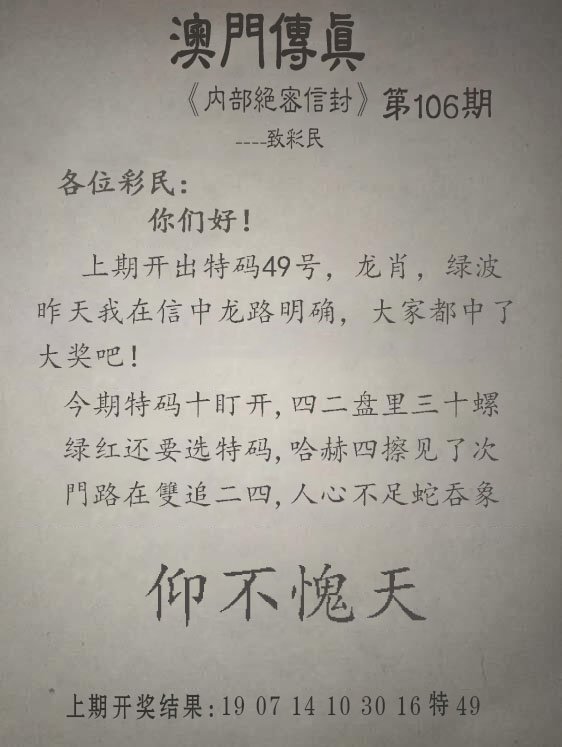 澳門傳眞
《内部絕密信封》第106期
----致彩民
各位彩民：
你们好！
上期开出特码49号，龙肖，绿波
昨天我在信中龙路明确，大家都中了
大奖吧！
今期特码十盯开,四二盘里三十螺
绿红还要选特码,哈赫四擦见了次
門路在雙追二四,人心不足蛇吞象
仰不愧天
上期开奖结果:19 07 14 10 30 16特49